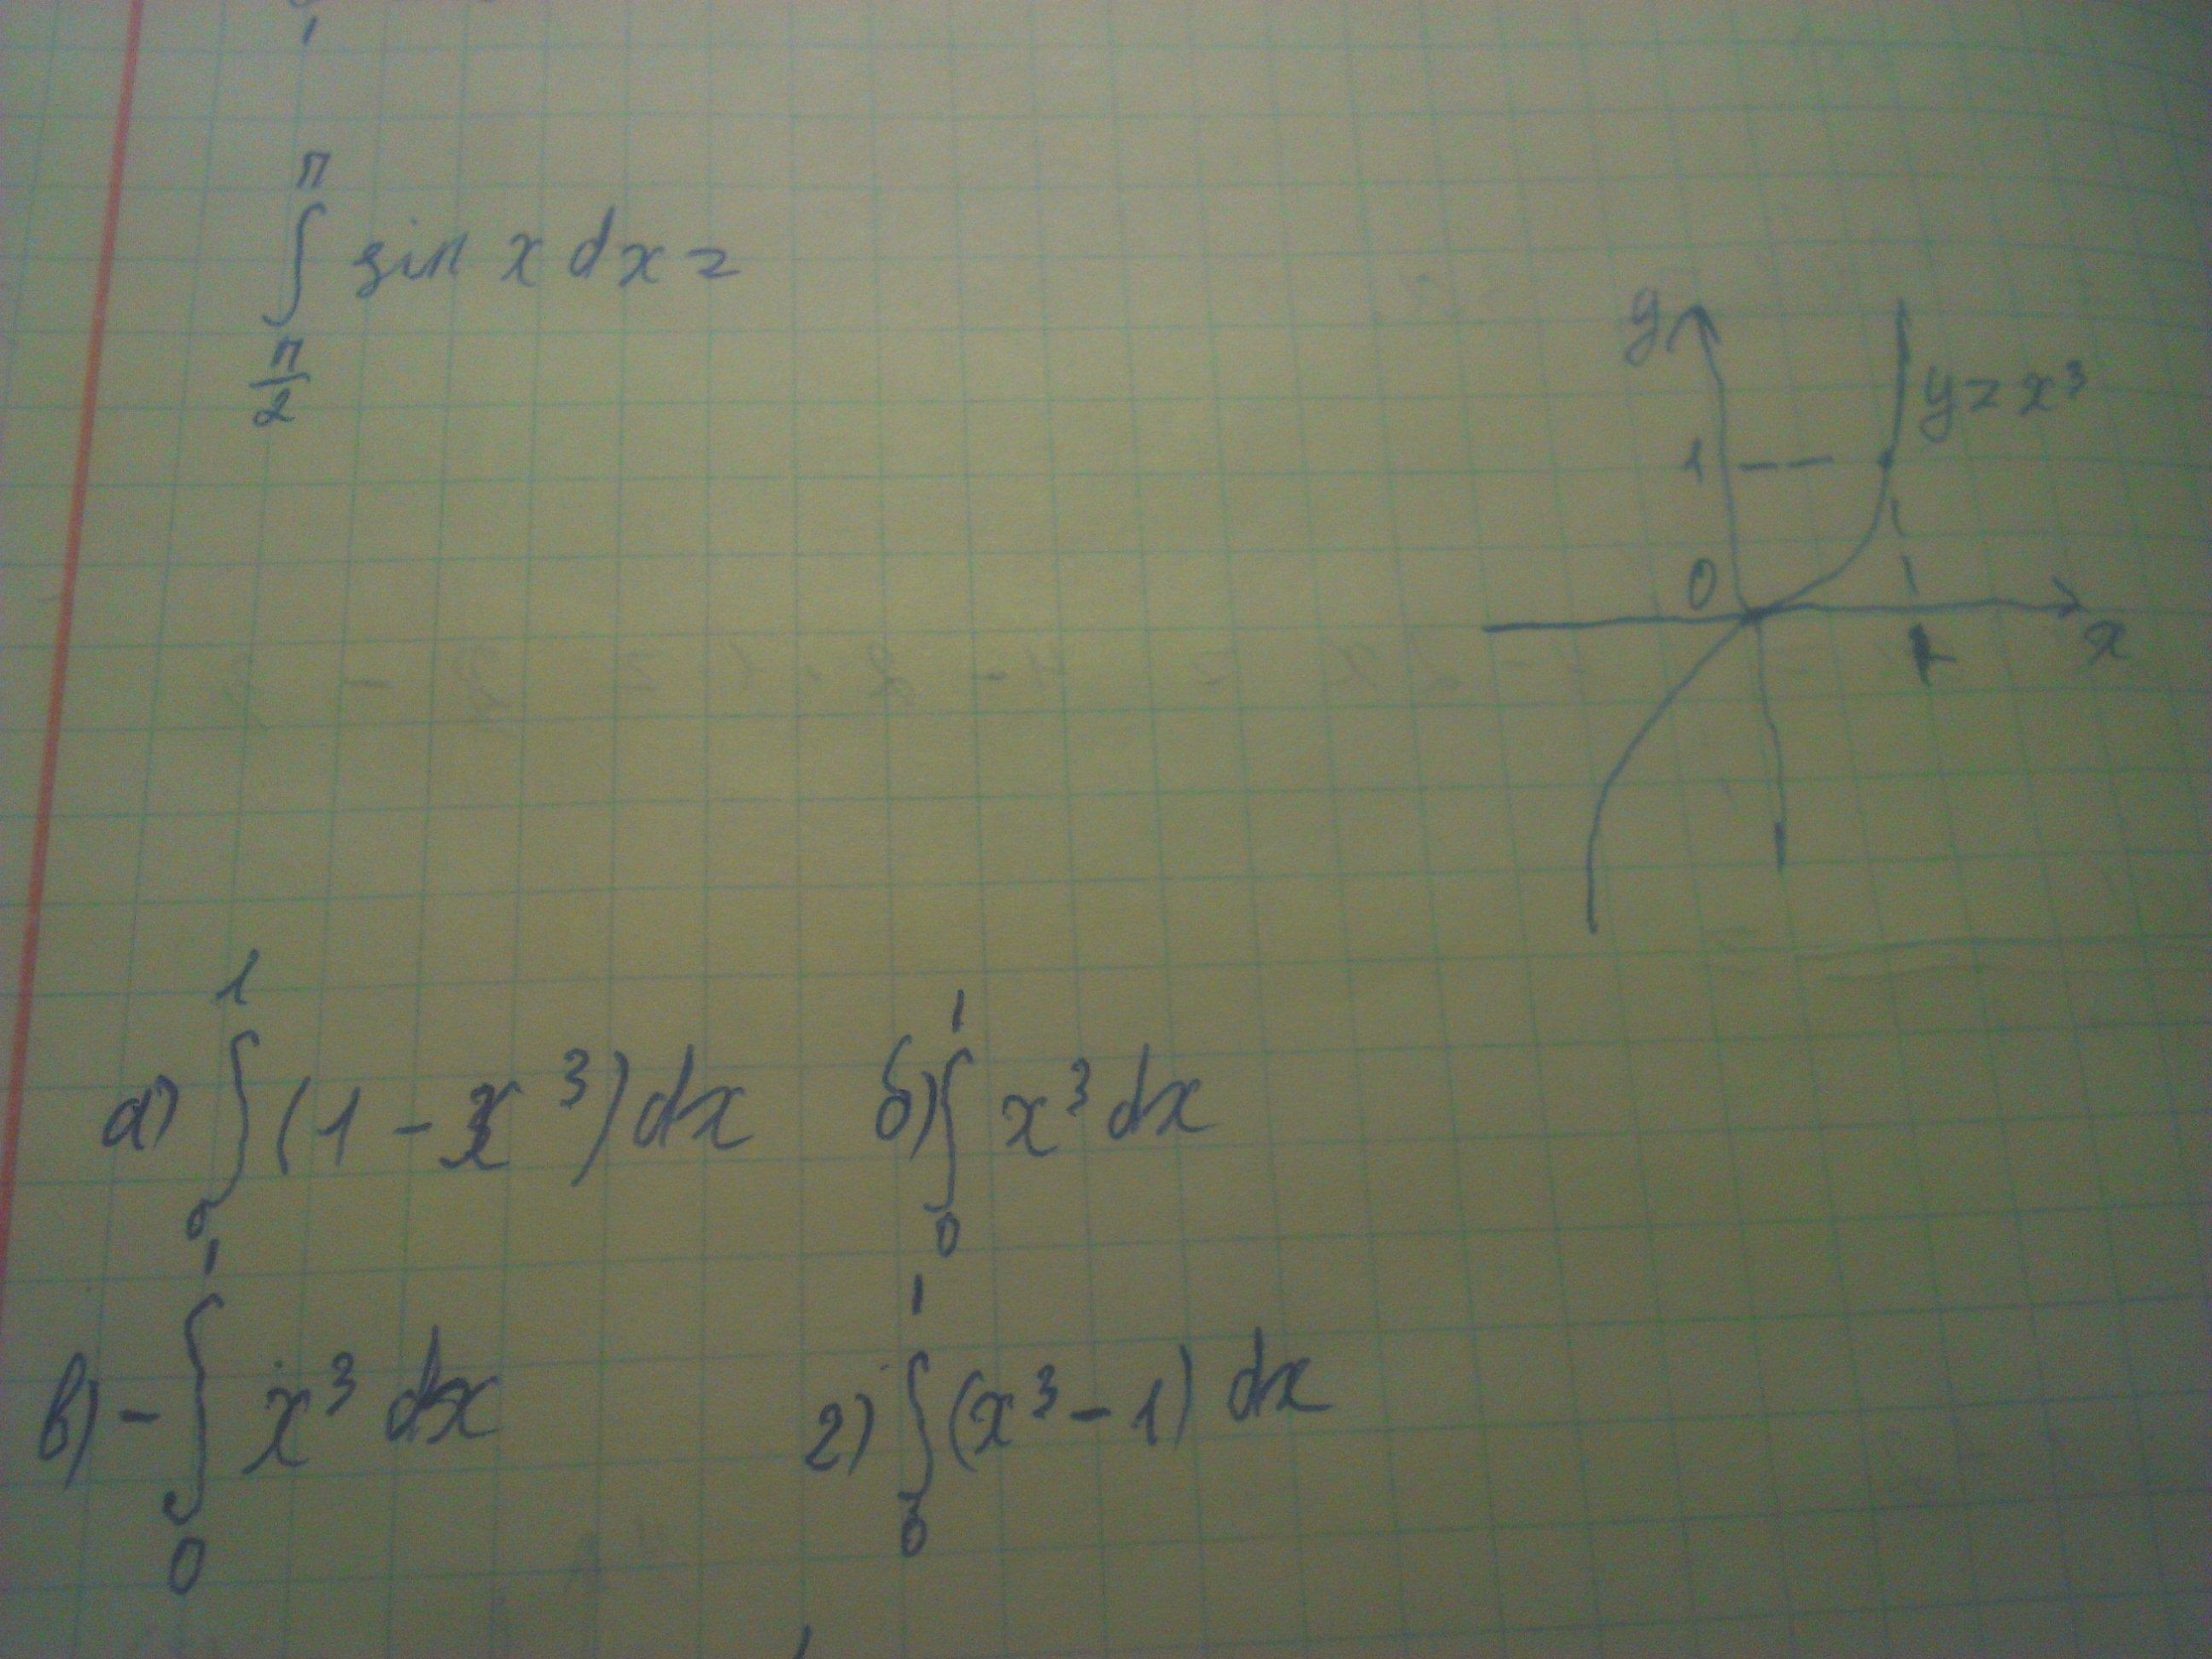 ∫_{π/2}^{π} sin x dx =
y
y = x³
1
0
1
x
а) ∫_{0}^{1} (1 - x³) dx б) ∫_{0}^{1} x³ dx
в) - ∫_{0}^{1} x³ dx г) ∫_{0}^{1} (x³ - 1) dx